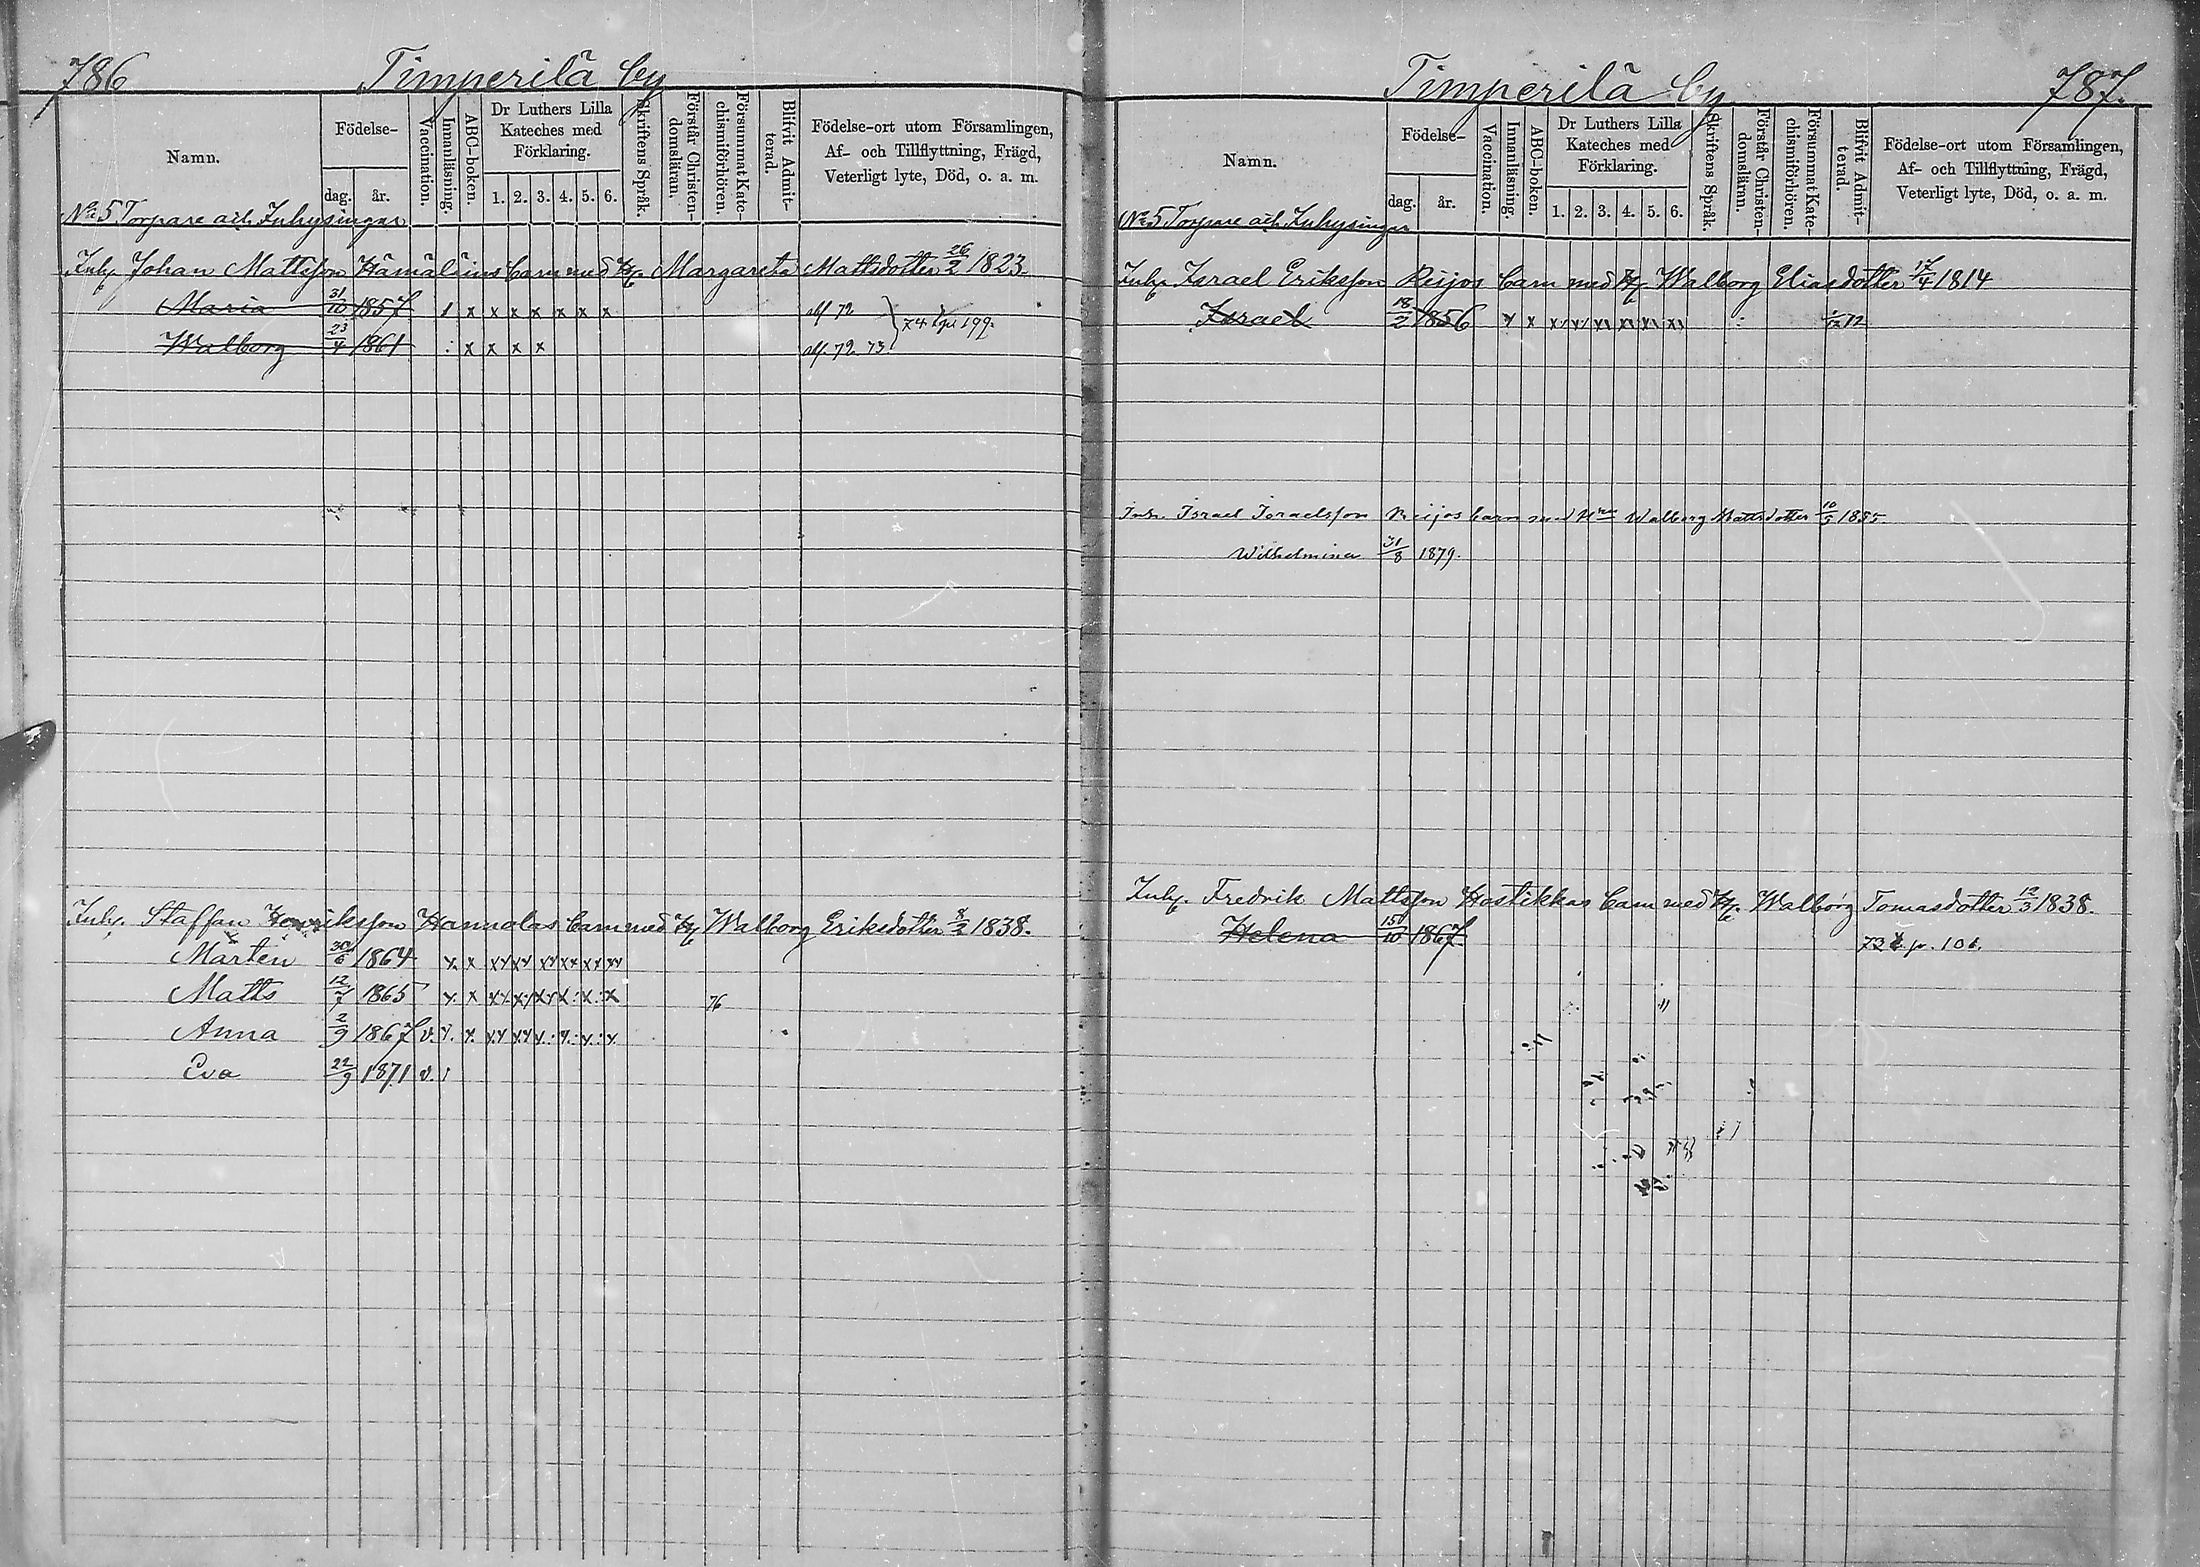 786 Timperilä by
Namn. Födelse- dag. år. Vaccination. Innanläsning. ABC-boken. Dr Luthers Lilla Kateches med Förklaring. 1. 2. 3. 4. 5. 6. Skriftens Språk. Förstår Christendomsläran. Försummat Katechismiförhören. Blifvit Admitterad. Födelse-ort utom Församlingen, Af- och Tillflyttning, Frägd, Veterligt lyte, Död, o. a. m.
No 5 Torpare och Inhysingar
Inh. Johan Mattsson Hämäläins barn med H. Margareta Mattsdotter 26/2 1823.
Maria 31/10 1857 x x x x x x x 72
Walborg 23/4 1861 x x x x 72 73 } 74 199.
Inh. Staffan Henriksson Hannolas barn med H. Walborg Eriksdotter 8/2 1838.
Mårten 30/6 1864
Matts 12/7 1865 76
Anna 2/9 1867 v.
Eva 22/9 1871 v.
Timperilä by 787.
Namn. Födelse- dag. år. Vaccination. Innanläsning. ABC-boken. Dr Luthers Lilla Kateches med Förklaring. 1. 2. 3. 4. 5. 6. Skriftens Språk. Förstår Christendomsläran. Försummat Katechismiförhören. Blifvit Admitterad. Födelse-ort utom Församlingen, Af- och Tillflyttning, Frägd, Veterligt lyte, Död, o. a. m.
No 5 Torpare och Inhysingar
Inh. Israel Eriksson Reijos barn med H. Walborg Eliasdotter 17/4 1814
Israel 18/2 1856
Inh. Israel Israelsson Reijos barn med H Walborg Mattsdotter 10/5 1855.
Wilhelmina 31/8 1879.
Inh. Fredrik Mattsson Hostikkas barn med H. Walborg Tomasdotter 12/3 1838.
Helena 15/10 1867 73 p. 101.